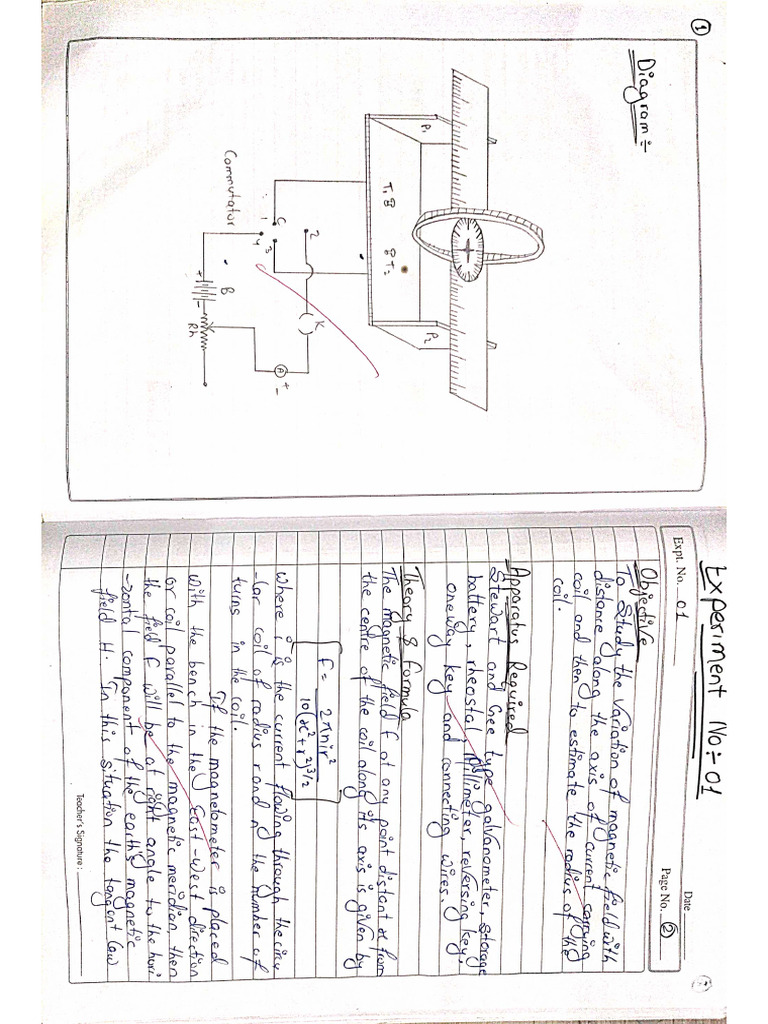 1
Diagram:-
P1
P2
T1
T2
C
1
2
3
4
K
Commutator
B
+
-
Rh
A
+
-
Experiment No:-01
Date
Expt. No. 01
Page No. 2
Objective
To Study the Variation of magnetic field with
distance along the axis of current carrying
coil and then to estimate the radius of the
coil.
Apparatus Required
Stewart and Gee type galvanometer, storage
battery, rheostat, millimeter, reversing key,
one way key and connecting wires.
Theory & formula
The magnetic field f at any point distant x from
the centre of the coil along its axis is given by
f = 2πnir² / 10(x²+r²)^3/2
Where i is the current flowing through the circu
-lar coil of radius r and n the number of
turns in the coil.
If the magnetometer is placed
with the bench in the East-West direction
or coil parallel to the magnetic meridian, then
the field f will be at right angle to the hori
-zontal component of the earth's magnetic
field H. In this situation the tangent law
Teacher's Signature :